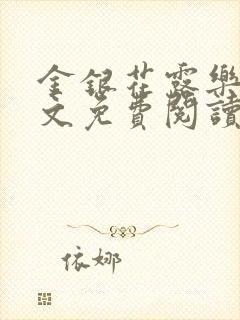 金银花露樂
文免費閱讀
依娜